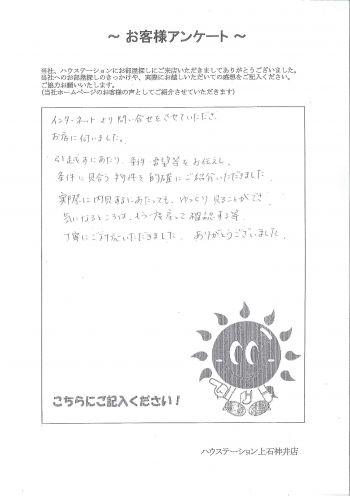 ～ お客様アンケート ～
当社、ハウステーションにお部屋探しにご来店いただきましてありがとうございました。
当社へのお部屋探しのきっかけや、実際にお越しいただいての感想をご記入ください。
ご協力お願いいたします。
(当社ホームページのお客様の声としてご紹介させていただきます)
インターネットより問い合せをさせていただき、
お店に伺いました。
引越しをするにあたり、条件・要望等をお伝えし、
条件に見合う物件を的確にご紹介いただきました。
実際に内見するにあたっても、ゆっくり見ることができ、
気になるところは、もう一度戻って確認する等、
丁寧にご対応いただきました。ありがとうございました。
こちらにご記入ください！
ハウステーション上石神井店